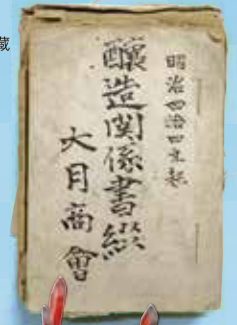 明治四拾四年起
醸造関係書綴
大月商會
蔵